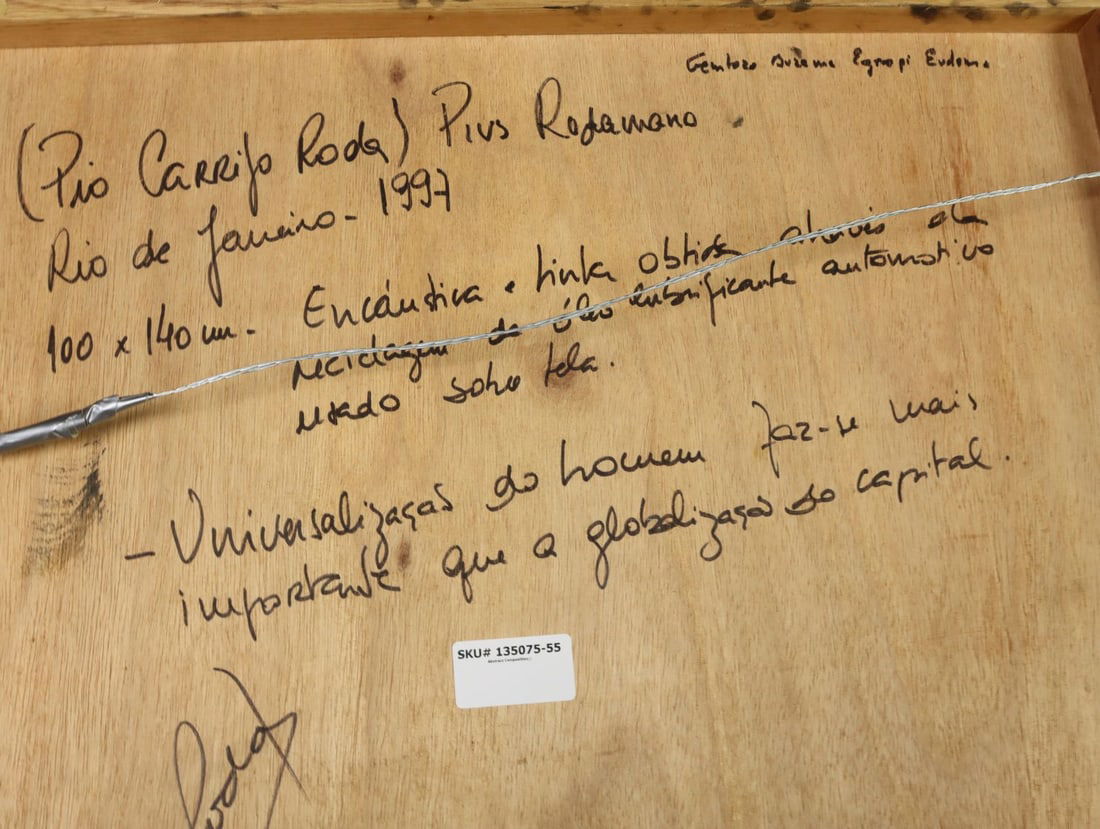 (Pio Carrijo Roda) Pius Rodamano
Rio de Janeiro - 1997
100 x 140 cm. Encáustica e tinta obtida através da
reciclagem de óleo lubrificante automotivo
usado sobre tela.
- Universalização do homem faz-se mais
importante que a globalização do capital.
SKU# 135075-55
Roda